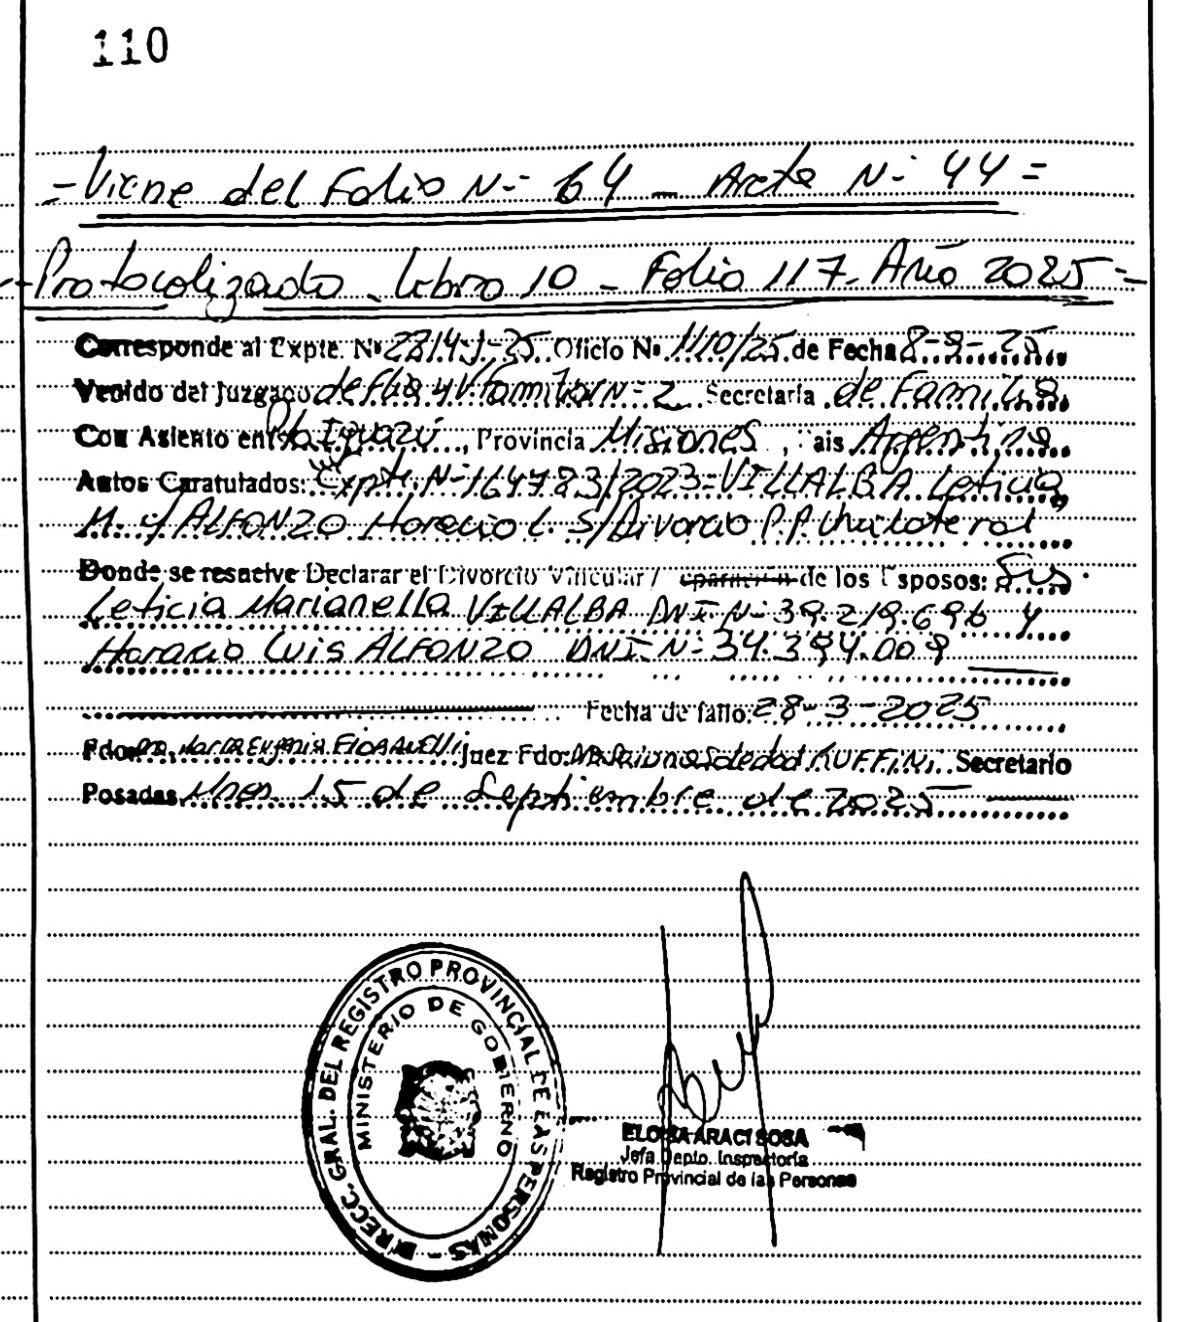 110
=Viene del Folio N-: 64 - Acta N-: 44=
-Protocolizado - Libro 10 - Folio 117 - Año 2025=
Corresponde al Expte. Nº 2214-J-25. Oficio Nº 1110/25 de Fecha 8-9-25
Venido del Juzgado de flia y V. familiar N-: 2 Secretaría de Familia
Con Asiento en Pto Iguazú, Provincia Misiones, País Argentina
Autos Caratulados: "Expte. N-164783/2023=VILLALBA Leticia
M. y ALFONZO Horacio L. S/Divorcio P.P. Unilateral"
Donde se resuelve Declarar el Divorcio Vincular / de los Esposos: Sres.
Leticia Marianella VILLALBA DNI-N-: 39.219.696 y
Horacio Luis ALFONZO DNI-N-: 34.394.009
Fecha de fallo: 28-3-2025
Fdo: Dra. María Eugenia FIORAVELLI Juez Fdo: Soledad RUFFINI. Secretario
Posadas, Mnes. 15 de Septiembre de 2025
DIRECC. GRAL. DEL REGISTRO PROVINCIAL DE LAS PERSONAS -
MINISTERIO DE GOBIERNO
ELOISA ARACI SOSA
Jefa Depto. Inspectoría
Registro Provincial de las Personas